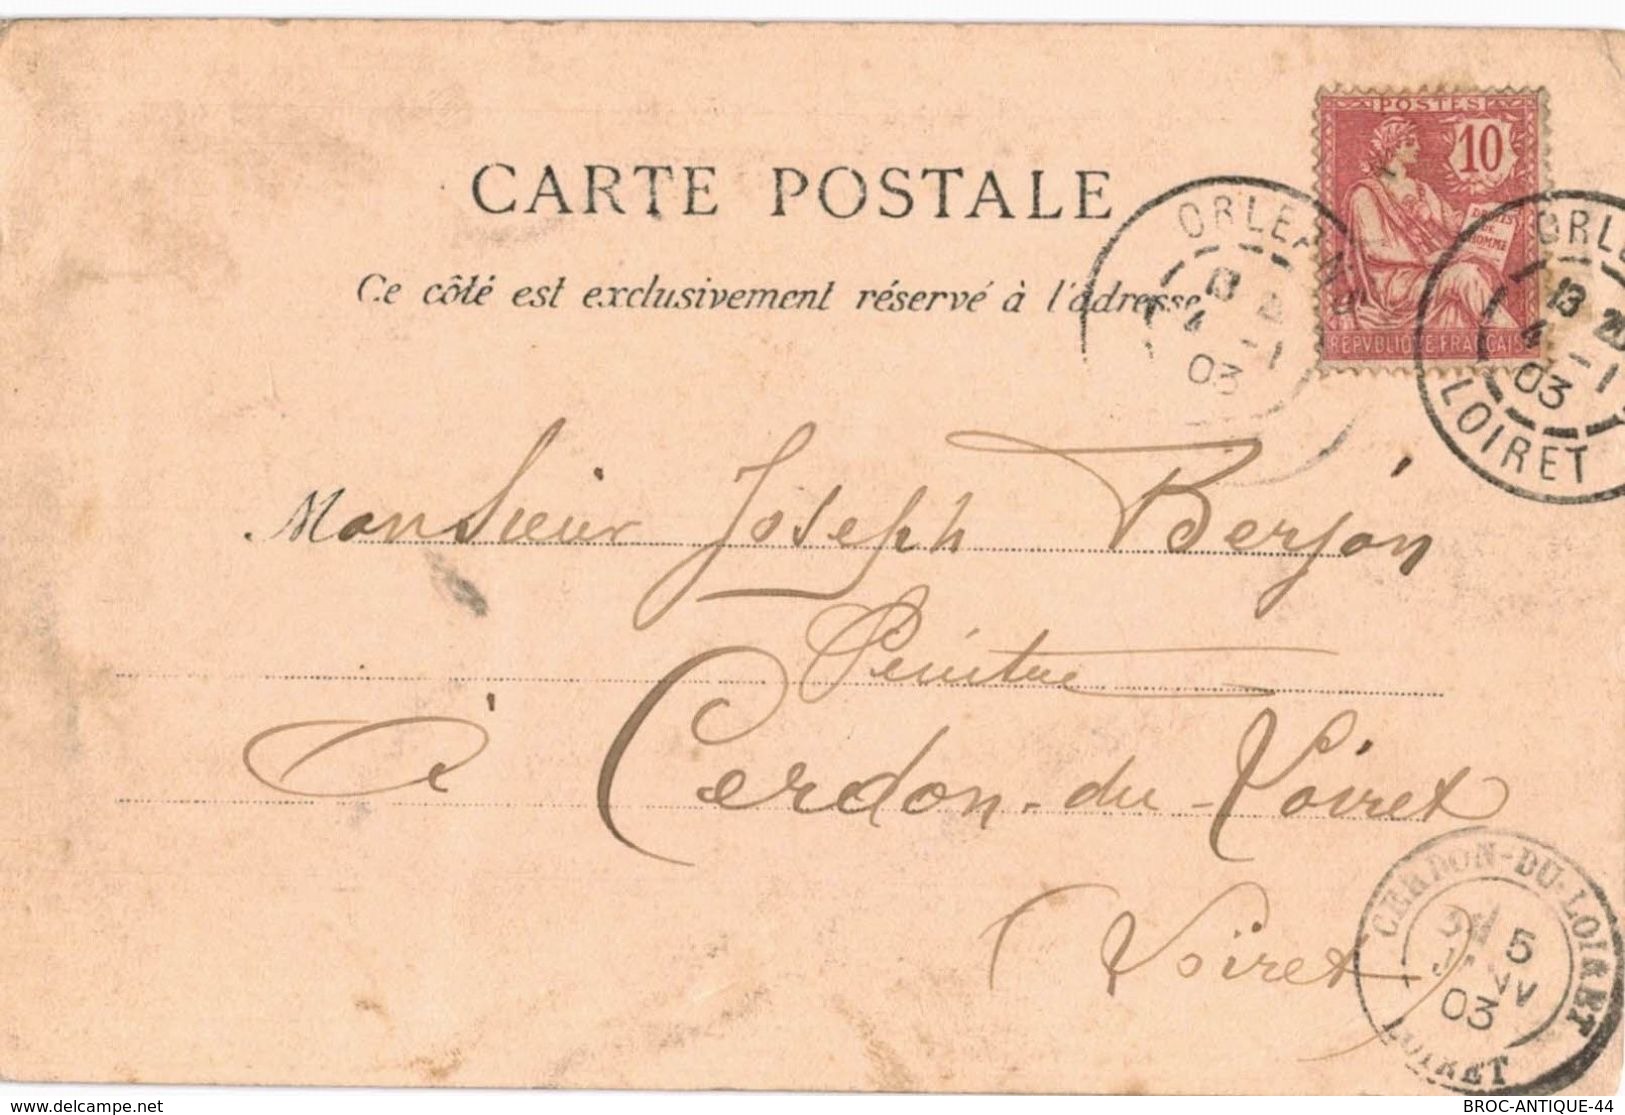 CARTE POSTALE
Ce côté est exclusivement réservé à l'adresse
POSTES
10
DROITS
DE
HOMME
REPVBLIQVE FRANÇAISE
ORLEANS
13
4 -1
03
ORLE
13 20
4 -1
03
LOIRET
Monsieur Joseph Berjon
Peintre
à Cerdon-du-Loiret
Loiret
CERDON-DU-LOIRET
5
JANV
03
LOIRET
delcampe.net
BROC-ANTIQUE-44